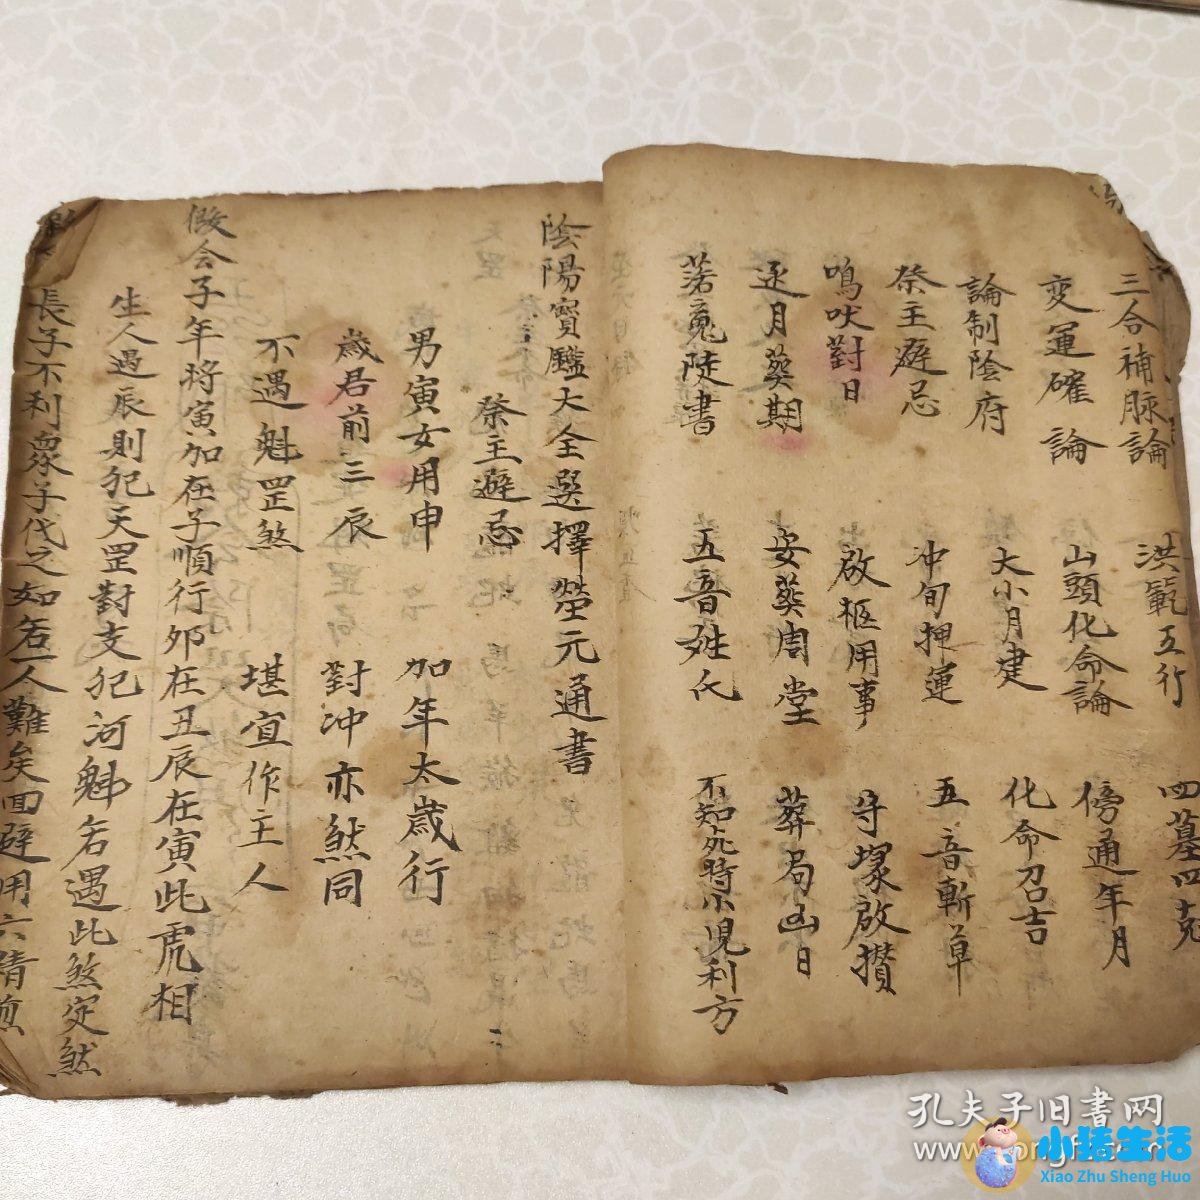 三合補脉論 洪範五行 四墓四克
变運確論 山頭化命論 傍通年月
論制陰府 大小月建 化命召吉
祭主避忌 冲旬押運 五音斬草
鳴吠對日 啟柩用事 守塚啟攢
逐月葵期 安葵周堂 葬局山日
落䰟陡書 五音姓氏 不知死時小児利方
陰陽寳鑑大全選擇瑩元通書
祭主避忌
男寅女用申 加年太歲行
歲君前三辰 對冲亦煞同
不遇魁罡煞 堪宜作主人
假令子年將寅加在子順行夘在丑辰在寅此虎相
生人遇辰則犯天罡對支犯河魁若遇此煞定煞
長子不利衆子代之如若一人難矣囬避用六
孔夫子旧書网
小猪生活
Xiao Zhu Sheng Huo